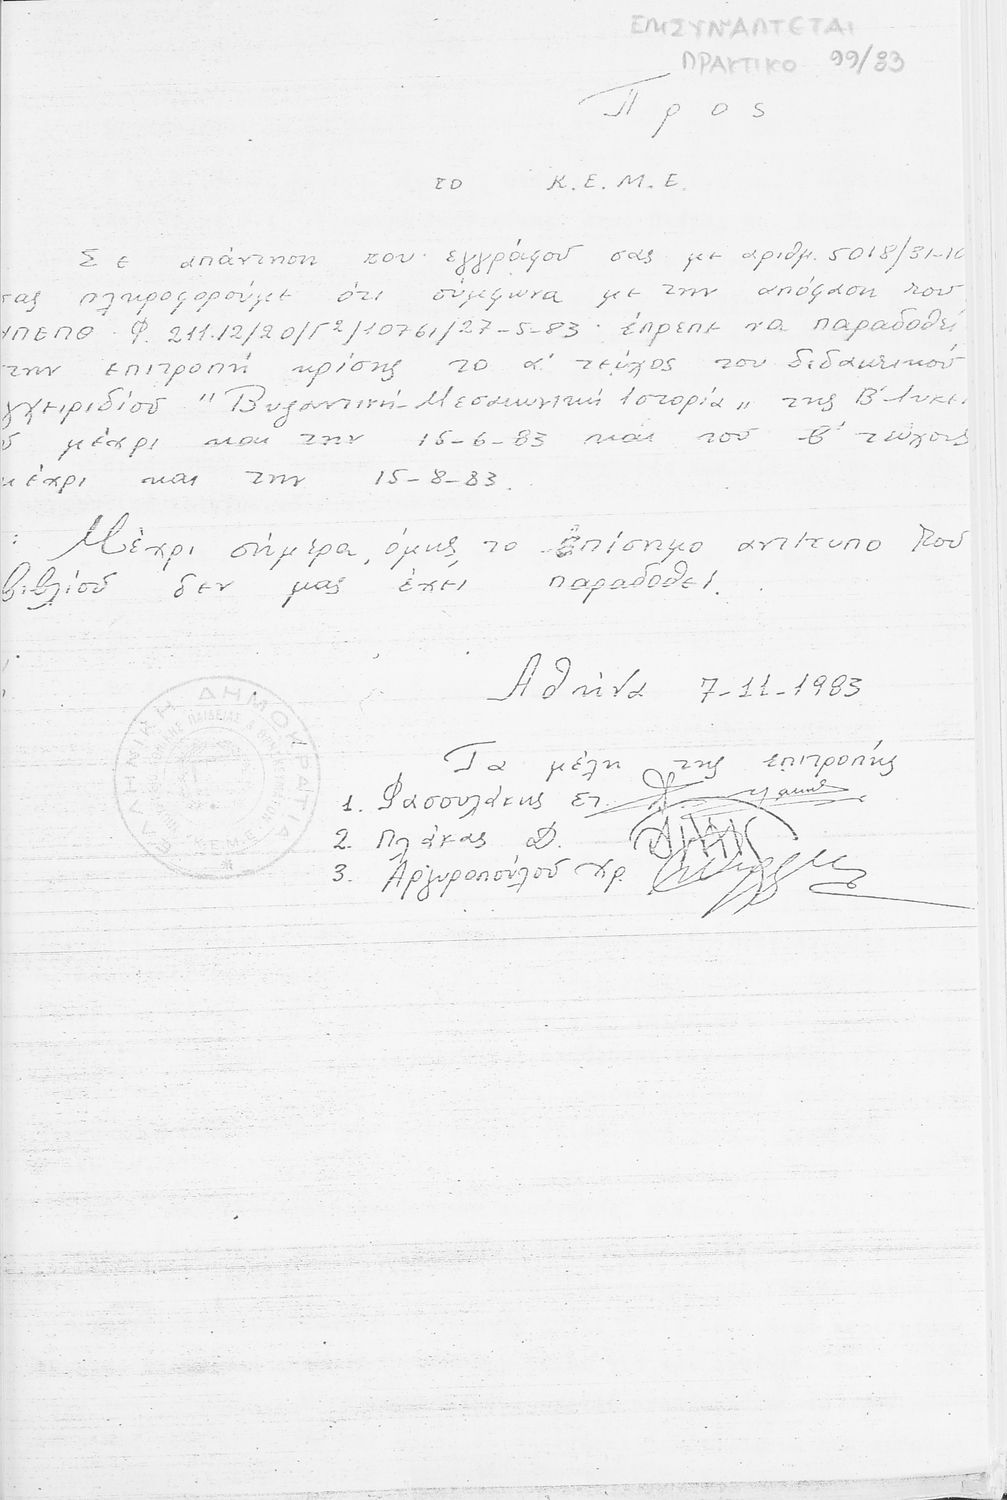 ΕΠΙΣΥΝΑΠΤΕΤΑΙ
ΠΡΑΚΤΙΚΟ 99/83
Προς
το Κ.Ε.Μ.Ε.
Σε απάντηση του εγγράφου σας με αριθμ. 5018/31-10
σας πληροφορούμε ότι σύμφωνα με την απόφαση του
ΥΠΕΠΘ Φ. 211.12/20/Γ2/10761/27-5-83 έπρεπε να παραδοθεί
την επιτροπή κρίσης το α' τεύχος του διδακτικού
γχειριδίου "Βυζαντινή-Μεσαιωνική Ιστορία" της Β' Λυκεί
υ μέχρι και την 15-6-83 και του β' τεύχους
μέχρι και την 15-8-83.
Μέχρι σήμερα, όμως, το επίσημο αντίτυπο του
βιβλίου δεν μας έχει παραδοθεί.
Αθήνα 7-11-1983
Τα μέλη της επιτροπής
1. Φασουλάκης Στ.
2. Πλάκας Δ.
3. Αργυροπούλου Χρ.
ΕΛΛΗΝΙΚΗ ΔΗΜΟΚΡΑΤΙΑ